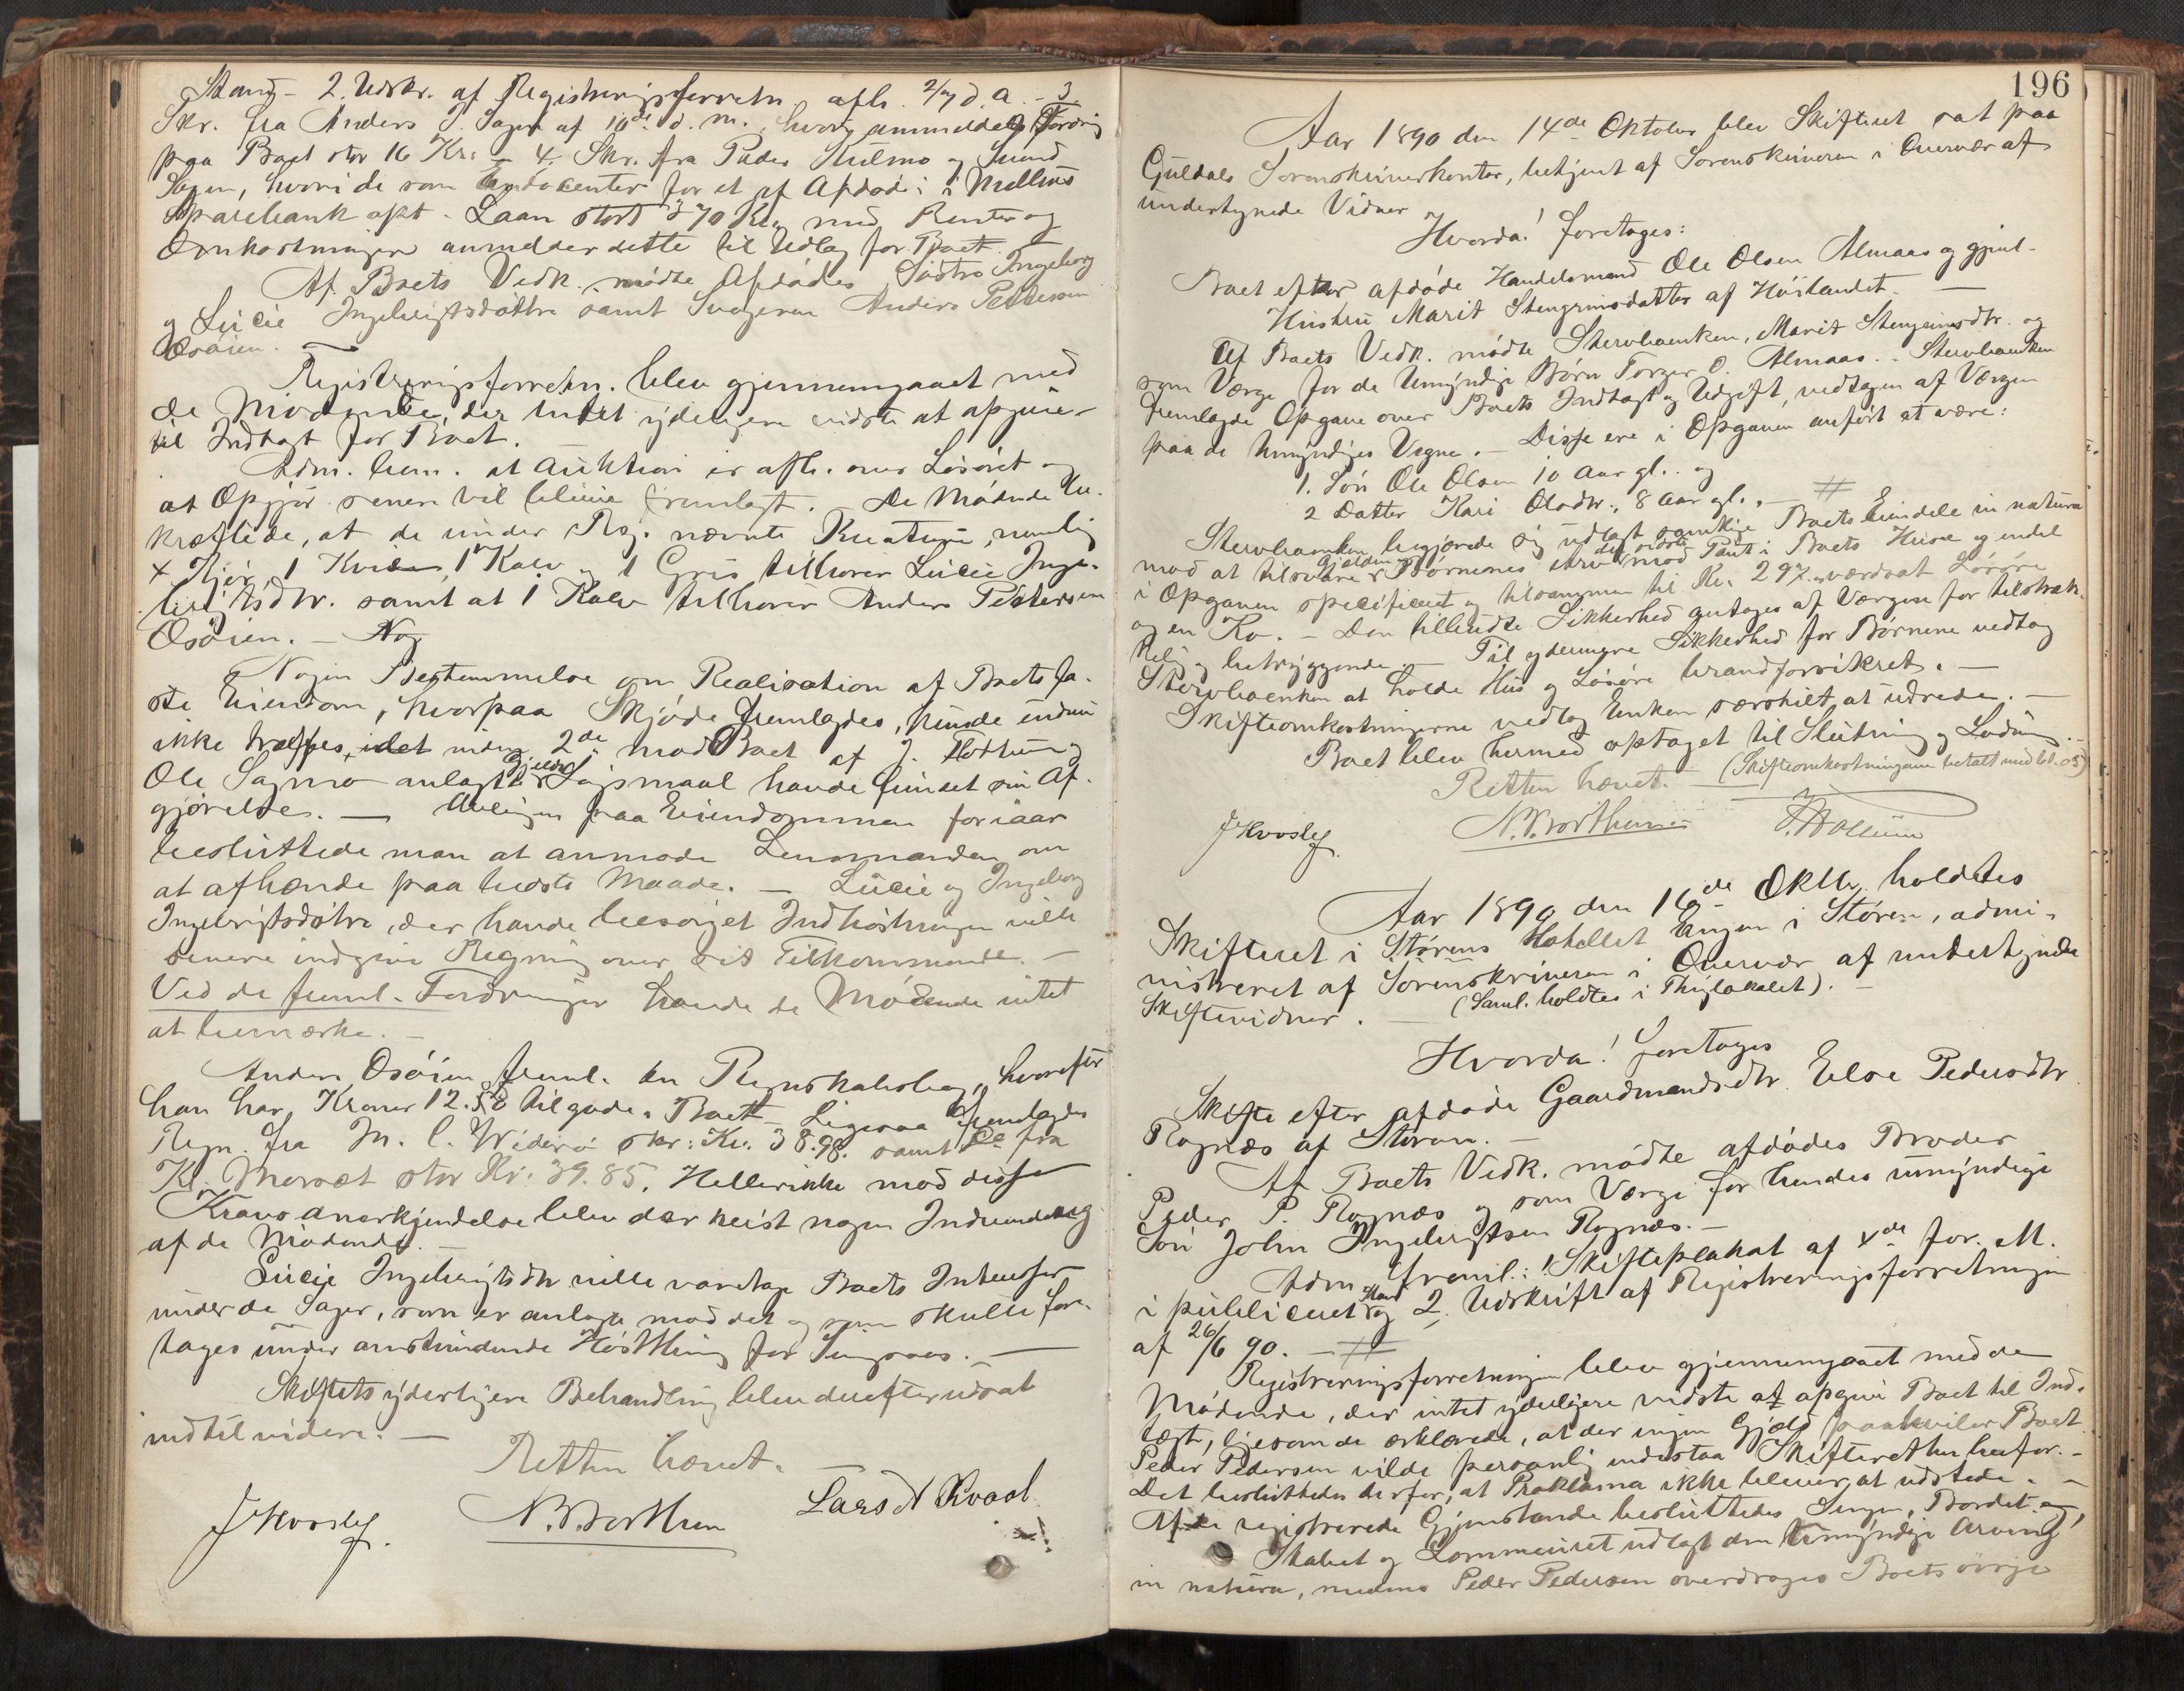 Stand - 2. Udskr. af Registreringsforretn. afh. 2/7 d. A. - 3
Skr. fra Anders J. Sagen af 10de d. m. hvori anmeldes Fordring
paa Boet stor 16 Kr. - 4. Skr. fra Peder Kulmo og
hvori de som for et af Afdøde i Melhus
Sparebank opt. Laan stort 370 Kr. med Renter og
Omkostninger anmelder dette til Udlæg for Boet.
Af Boets Vedk. mødte Afdødes Søstre Ingeborg
og Lucie Ingebrigtsdøttre samt Svogeren Anders Pettersen
Osøien.
Registreringsforretn. blev gjennemgaaet med
de Mødende, der intet yderligere vidste at opgive
til Indtægt for Boet.
Adm. bem. at Auktion er afh. over Løsøret og
at Opgjør senere vil blive fremlagt. De Mødende be-
kræftede, at de under Reg. nævnte Kreature, nemlig
4 Kjør, 1 Kvie, 1 Kalv og 1 Gris tilhører Lucie Inge-
brigtsdtr. samt at 1 Kalv tilhører Anders Pettersen
Osøien. - Nog
Nogen Bestemmelse om Realisation af Boets fa-
ste Eiendom, hvorpaa Skjøde fremlagdes, kunde endnu
ikke træffes, idet 2de mod Boet af J. og
Ole Sagmo anlagte Gjelds Søgsmaal havde fundet sin Af-
gjørelse. - Avlingen paa Eiendommen for iaar
besluttede man at anmode Lensmanden om
at afhænde paa bedste Maade. - Lucie og Ingeborg
Ingebrigtsdøtre, der havde besørget Indhøstningen vilde
senere indgive Regning over sit Tilkommende. -
Ved de freml. Fordringer havde de Mødende intet
at bemærke. -
Anders Osøien freml. en Regnskabsbog, hvorefter
han har Kroner 12.58 tilgode i Boet. Ligesaa fremlagdes
Regn. fra M. C. Widerø stor: Kr. 38.98. samt fra
Kl. Moræt stor Kr. 39.85. Heller ikke mod disse
Kravs Anerkjendelse blev der reist nogen Indvending
af de Mødende. -
Lucie Ingebrigtsdtr vilde varetage Boets Interesser
under de Sager, som er anlagte mod det og som skulle fore-
tages under anstundende Høstthing for Singsaas. -
Skiftets yderligere Behandling blev derefter udsat
indtil videre. -
Retten hævet. -
J Hvoslef N. P. Borthen Lars N Kvaal

196
Aar 1890 den 14de Oktober blev Skifteret sat paa
Guldals Sorenskriverkontor, betjent af Sorenskriveren i Overvær af
undertegnede Vidner
Hvorda! foretages:
Boet efter afdøde Handelsmand Ole Olsen Almaas og gjenl.
Hustru Marit Stengrimsdatter af Høilandet. -
Af Boets Vedk. mødte Stervboenken, Marit Stengrimsdtr. og
som Værge for de Umyndige Børn Torger O. Almaas. - Stervboenken
fremlagde Opgave over Boets Indtægt og Udgift, vedtagen af Værgen
paa de Umyndiges Vegne. - Disse ere i Opgaven anført at være:
1. Søn Ole Olsen 10 Aar gl. og
2 Datter Kari Olsdtr., 8 Aar gl. -
Stervboenken begjærede sig udlagt samtlige Boets Eiendele in natura
mod at tilsvare Gjælden og Børnenes Arv det sidste mod Pant i Boets Huse og endel
i Opgaven specificeret og tilsammen til Kr. 297 værdsat Løsøre
og en Ko. - Den tilbudte Sikkerhed antoges af Værgen for tilstræk-
kelig og betryggende. - Til ydermere Sikkerhed for Børnene vedtog
Stervboenken at holde Hus og Løsøre brandforsikret. -
Skifteomkostningerne vedtog Enken særskilt at udrede. -
Boet blev hermed optaget til Slutning og Lodning. -
Retten hævet. - (Skifteomkostningerne betalt med bl. 05)
J Hvoslef N. P. Borthen

Aar 1890 den 16de Oktbr. holdtes
Skifteret i Størens Hotellet Engen i Støren, admi-
nistreret af Sorenskriveren i Overvær af undertegnede
Skiftevidner. - (Saml. holdtes i Thinglokalet). -
Hvorda! foretages
Skifte efter afdøde Gaardmandsdtr. Else Pedersdtr
Rognæs af Støren. -
Af Boets Vedk. mødte afdødes Broder
Peder P. Rognæs og som Værge for hendes umyndige
Søn John Ingebrigtsen Rognæs. -
Adm. freml.: 1 Skifteplakat af 4de for. M.
i publiceret Stand og 2. Udskrift af Registreringsforretningen
af 26/6 90. -
Registreringsforretningen blev gjennemgaaet med de
Mødende, der intet yderligere vidste at opgive Boet til Ind-
tægt, ligesom de erklærede, at der ingen Gjæld paahviler Boet.
Peder Pedersen vilde personlig indestaa Skifteretten herfor. -
Det besluttedes derfor, at Proklama ikke bliver at udstede. -
Af de registrerede Gjenstande besluttedes Sengen, Bordet og
Skabet og Lommeuret udlagt den Umyndige Arving
in natura, medens Peder Pedersen overdroges Boets øvrige